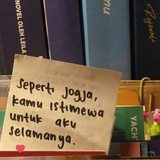 NOVEL OLEH LEILA
Seperti Jogja,
kamu istimewa
untuk aku
selamanya.
YACHT